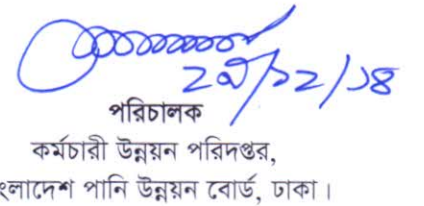 ২৯/১২/১৪
পরিচালক
কর্মচারী উন্নয়ন পরিদপ্তর,
ংলাদেশ পানি উন্নয়ন বোর্ড, ঢাকা।